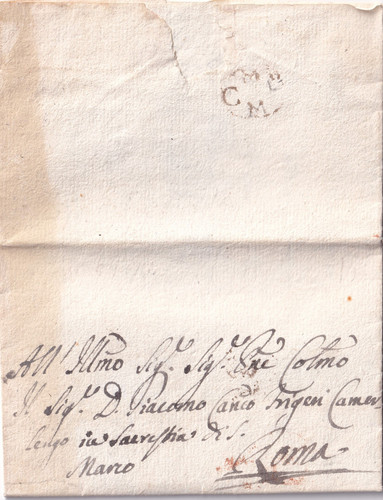 C M B M
All' Illmo Sigr. Sigr. Pne Colmo
Il Sigr. D. Giacomo Canco Frigeri Camer
lengo in Sacrestia di S.
Marco Roma